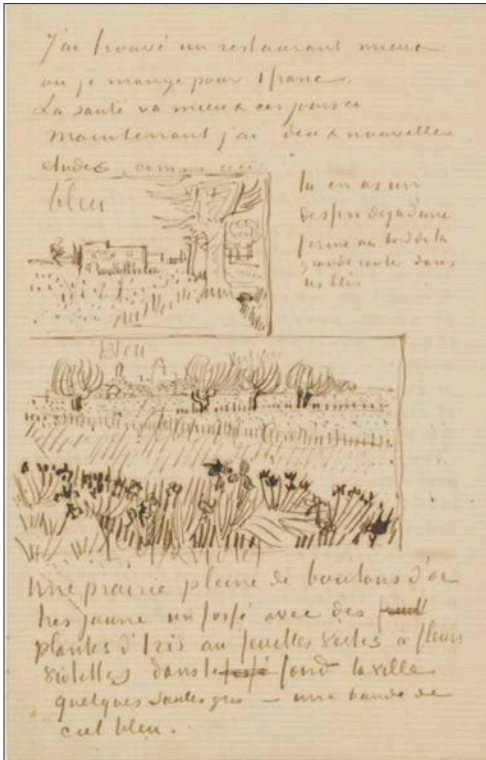 J'ai trouvé un restaurant mieux
où je mange pour 1 franc.
La santé va mieux ces jours ci
Maintenant j'ai deux nouvelles
études comme ceci
bleu
tu en as un
dessin déjà d'une
ferme au bord de la
grande route dans
les blés
Bleu
Violet
Une prairie pleine de boutons d'or
très jaune un fossé avec des
plantes d'Iris au feuilles vertes à fleurs
violettes dans le fossé fond la ville
quelques saules gris – une bande de
ciel bleu.